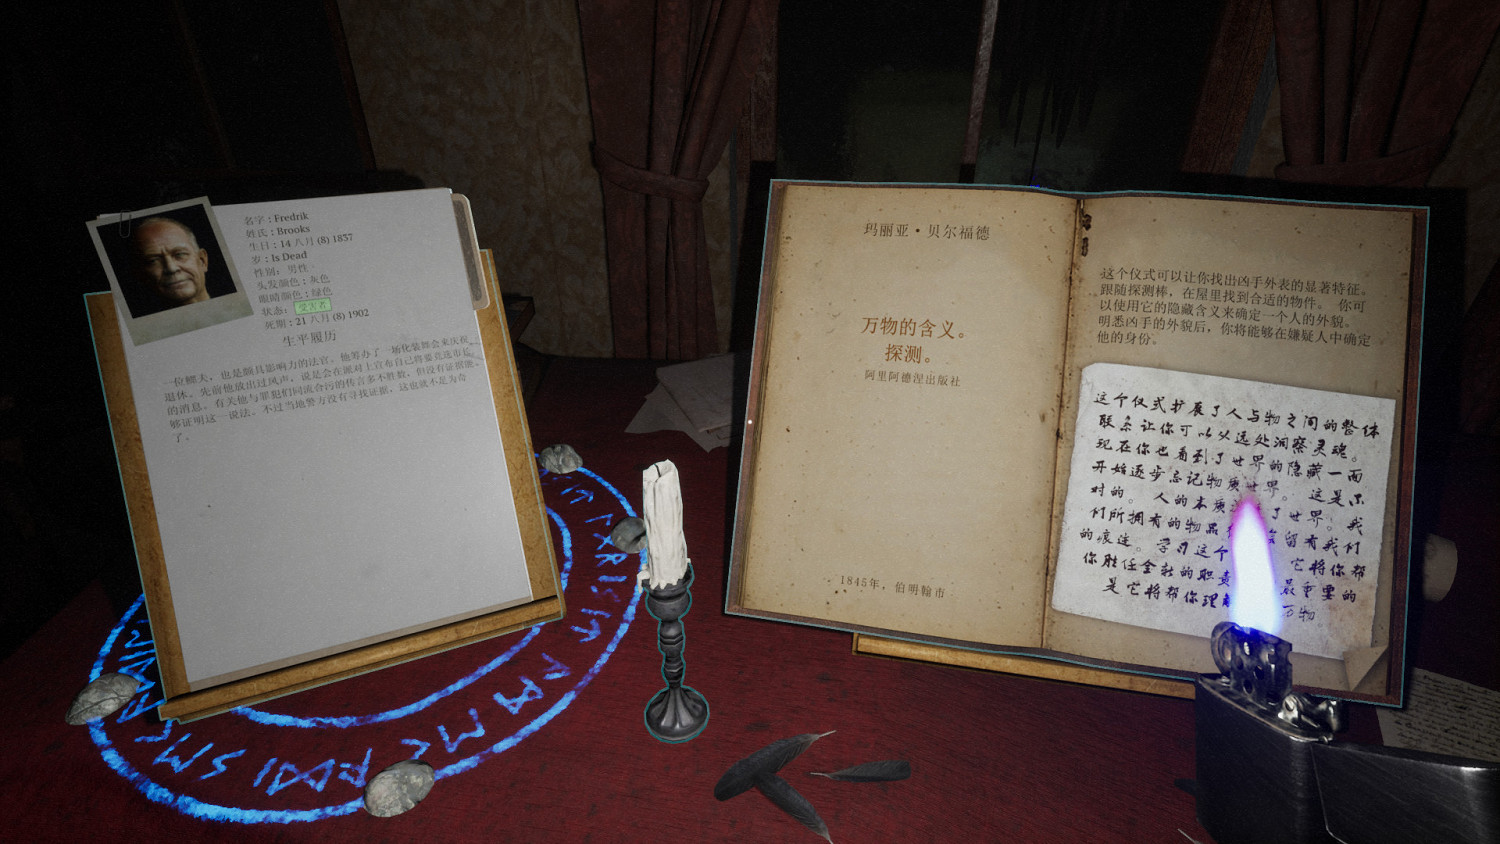 名字 : Fredrik
姓氏 : Brooks
生日 : 14 八月 (8) 1837
岁 : Is Dead
性别: 男性
头发颜色 : 灰色
眼睛颜色 : 绿色
状态: 受害者
死期 : 21 八月 (8) 1902
生平履历
一位鳏夫，也是颇具影响力的法官。他筹办了一场化装舞会来庆祝
退休。先前他放出过风声，说是会在派对上宣布自己将要竞选市
的消息。有关他与罪犯们同流合污的传言多不胜数，但没有证据能
够证明这一说法。不过当地警方没有寻找证据，这也就不足为奇
了。
玛丽亚·贝尔福德
万物的含义。
探测。
阿里阿德涅出版社
1845年，伯明翰市
这个仪式可以让你找出凶手外表的显著特征。
跟随探测棒，在屋里找到合适的物件。 你可
以使用它的隐藏含义来确定一个人的外貌。
明悉凶手的外貌后，你将能够在嫌疑人中确定
他的身份。
这个仪式扩展了人与物之间的整体
联系让你可以从远处洞察灵魂。
现在你也看到了世界的隐藏一面
开始逐步忘记物质世界。 这是不
对的。 人的本质 了世界！我
们所拥有的物品 留有我们
的痕迹。 学习这个 它将你帮
你胜任全新的职责 最重要的
是它将帮你理 万物